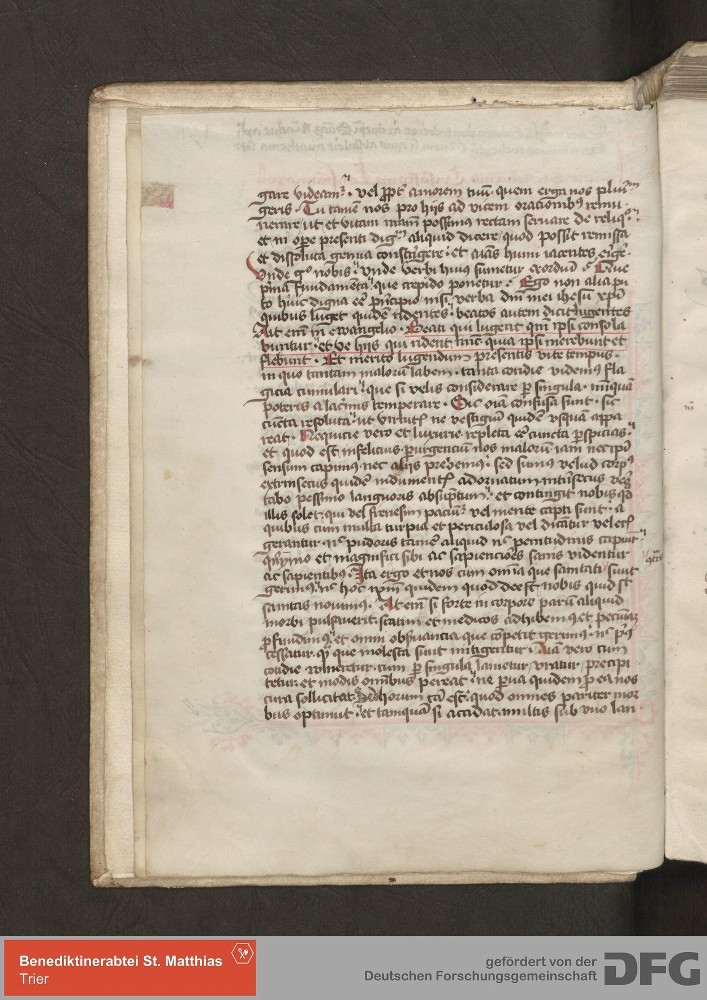 gare videamꝰ · vel ꝓpt̄ amorem tuū · quem erga nos pluri
geris · Tu tamē nos pro hijs ad vicem orationibꝰ remu
nerare ut et vitam nr̄am possimus rectam seruare de reliqº
et in oꝑe presenti digᵐ aliquid dicere / quod possit remissa
et dissoluta genua constrīgere · et aīas humi iacentes eigēꝰ
Vnde gº nobis · vnde verbi huius sumetur exordiū ·
pͥma fundamēta · que crepido ponetur · Ego non alia pu
to hͥuc digna eē pͥncipio nisi verba dn̄i mei ihesu xp̄i
quibus luget quidē ridentes · beatos autem dicit lugentes
Ait em̄ in ewangelio · Beati qui lugent qm̄ ipsi consola
buntur · et ve hijs qui rident nūc quia ipsi merebunt et
flebunt · Et merito lugendum presentis vite tempus ·
in quo tantam malorū labem · tanta cotidie videmꝰ fla
gicia cumulari · que si velis considerare ꝑ singula · nūquā
poteris a lacrimis temperare · Sic oīa confusa sunt · sic
cuncta resoluta · ut virtutꝭ ne vestigiū quidē vsquā appa
reat · Nequicie vero et luxurie repleta eē cuncta ꝑspicias ·
et quod est infelicius · ꝑurgenciū nos malorū iam nec ipsi
sensum capimꝰ · nec alijs prebemꝰ · sed sumꝰ velud corpꝰ
extrinsecus quidē indumentꝭ adornatum intrīsecus
tabo pessimo languoris absūptum · et contingit nobis qd̄
illis solet · qui vel frenesim paciūt vel mente capti sunt · a
quibus cum multa turpia et periculosa vel dicātur vel etiā
gerantur · nͨ pudoris tamē aliquid nͨ penitudinis capiūt ·
qͥnymo et magnifici sibi ac sapienciores sanis videntur
ac sapientibꝰ · Ita ergo et nos cum omīa que sanitati sunt
gerimꝰ · nͨ hoc ipm̄ quidem quod deest nobis quid sit
sanitas nouimus · At em̄ si forte in corpore parū aliquid
morbi pulsauerit · statim et medicos adhibemꝰ et pecunias
ꝓfundimꝰ · et omni obseruancia que cōpetit gerimus · nͨ pͥꝰ
cessatur · qͣ que molesta sunt mitigentur · Aīa vero cum
cotidie vulneretur · cum ꝑ singula lanietur · vratur · precipi
tetur · et modis omnibus pereat · ne parua quidem ꝓ ea nos
cura sollicitat · Sed horum cā est · quod omnes pariter mor
bus optinuit · et tamquā si accidat a multis sub vno lan
Benediktinerabtei St. Matthias
Trier
gefördert von der
Deutschen Forschungsgemeinschaft
DFG